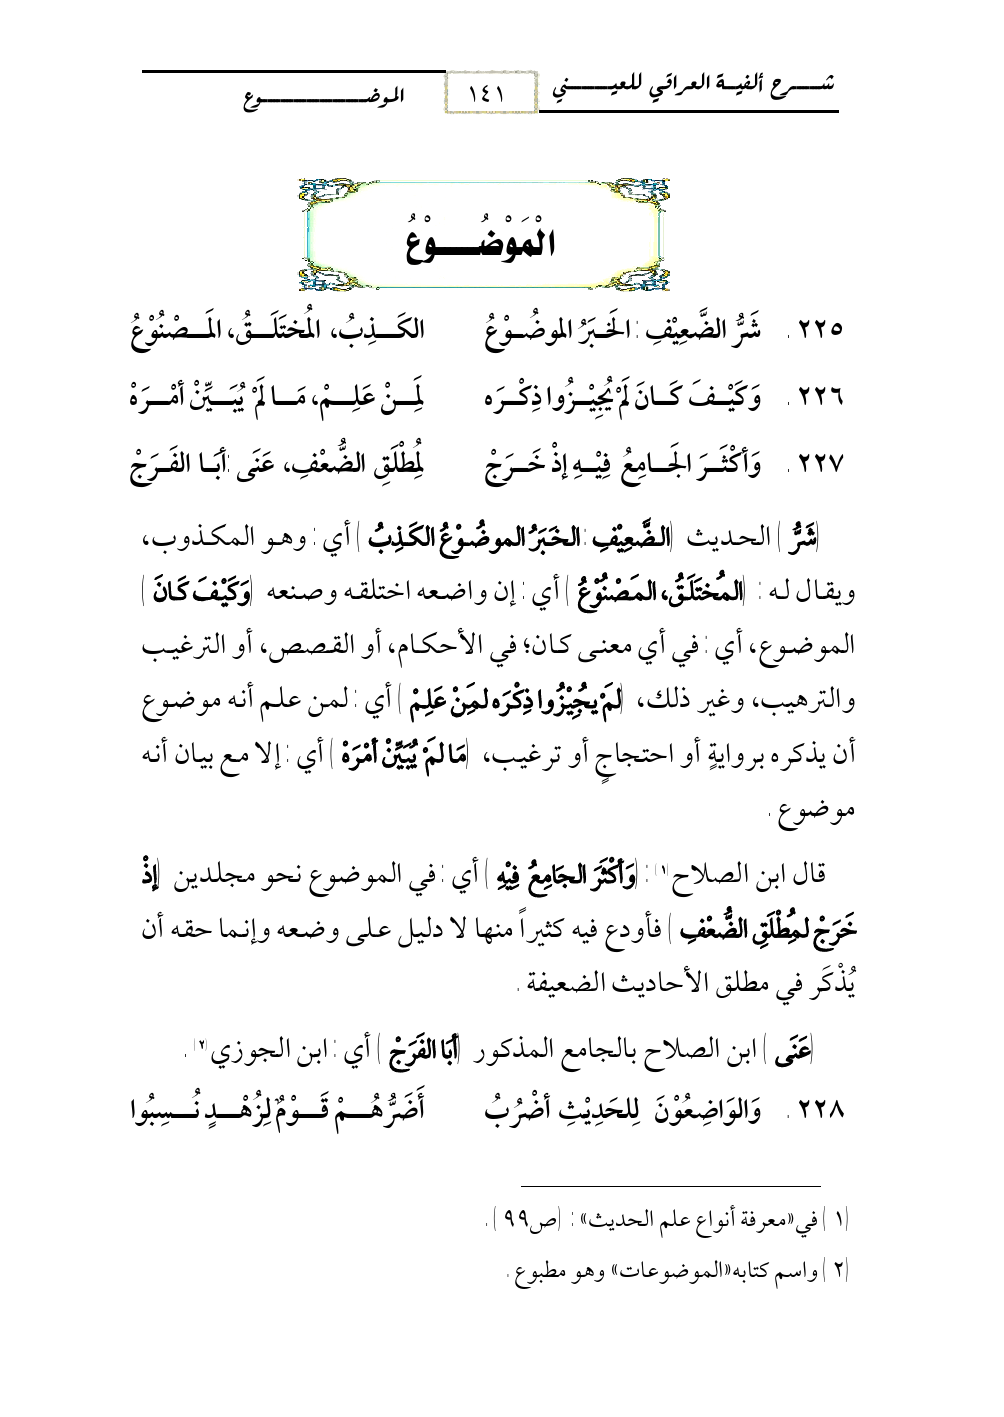 شـــرح ألفيـة العراقي للعيـــــني
١٤١
الموضـــــــــــــوع
الْمَوْضُـــــوْعُ
٢٢٥. شَرُّ الضَّعِيْفِ: الخَـبَرُ الموضُـوْعُ الكَــذِبُ، المُختَلَــقُ، المَــصْنُوْعُ
٢٢٦. وَكَيْـفَ كَـانَ لَمْ يُجِيْـزُوا ذِكْـرَه لِمَــنْ عَلِــمْ، مَــا لَمْ يُبَــيِّنْ أمْــرَهْ
٢٢٧. وَأكْثَـرَ الجَـامِعُ فِيْـهِ إذْ خَـرَجْ لِمُطْلَقِ الضُّعْفِ، عَنَى: أبَـا الفَـرَجْ
(شَرُّ) الحديث (الضَّعِيْفِ: الخبَرُ الموضُوْعُ الكَذِبُ) أي: وهـو المكـذوب،
ويقـال لـه: (المُختَلَقُ، المَصْنُوْعُ) أي: إن واضـعه اختلقـه وصـنعه (وَكَيْفَ كَانَ)
الموضـوع، أي: في أي معنـى كـان؛ في الأحكـام، أو القـصص، أو الترغيـب
والترهيب، وغير ذلك، (لم يُجِيْزُوا ذِكْرَه لمَِنْ عَلِمْ) أي: لمن علم أنه موضوع
أن يذكره بروايةٍ أو احتجاجٍ أو ترغيب، (مَا لمْ يُبَيِّنْ أمْرَهْ) أي: إلا مع بيان أنه
موضوع.
قال ابن الصلاح(١): (وَأكْثَرَ الجَامِعُ فِيْهِ) أي: في الموضوع نحو مجلدين (إذْ
خَرَجْ لمُِطْلَقِ الضُّعْفِ) فأودع فيه كثيراً منها لا دليل على وضعه وإنما حقه أن
يُذْكَر في مطلق الأحاديث الضعيفة.
(عَنَى) ابن الصلاح بالجامع المذكور (أبَا الفَرَجْ) أي: ابن الجوزي(٢).
٢٢٨. وَالوَاضِعُوْنَ لِلحَدِيْثِ أضْرُبُ أَضَرُّهُــمْ قَــوْمٌ لِزُهْــدٍ نُــسِبُوا
(١) في «معرفة أنواع علم الحديث»: (ص٩٩).
(٢) واسم كتابه «الموضوعات» وهو مطبوع.